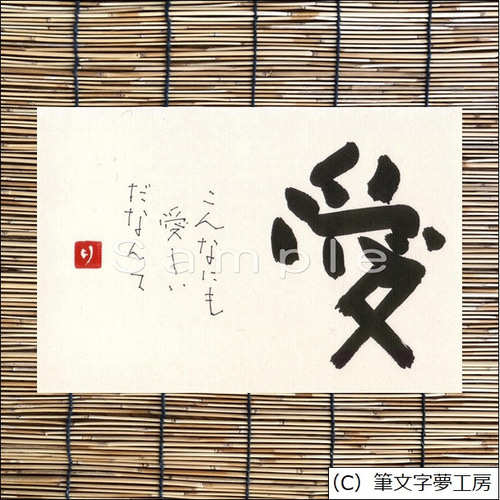 愛
こんなにも
愛しい
だなんて
り
Sample
(C) 筆文字夢工房